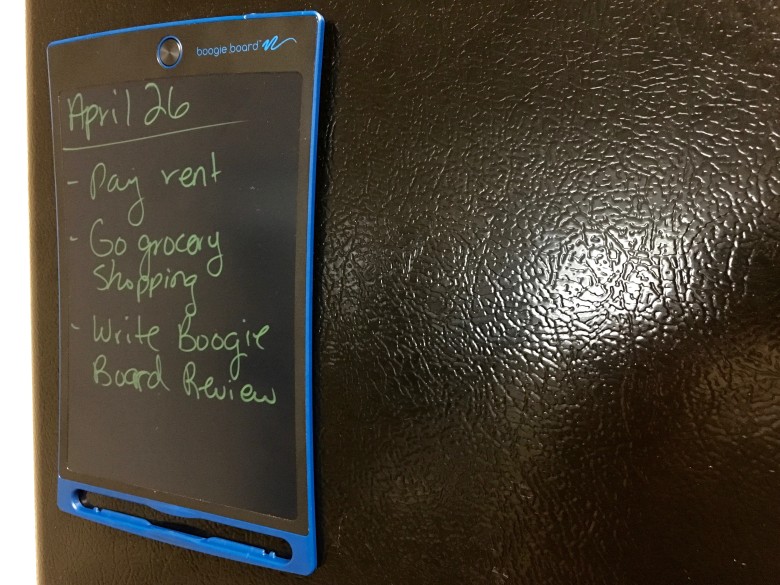 boogie board™
April 26
- Pay rent
- Go grocery
Shopping
- Write Boogie
Board Review